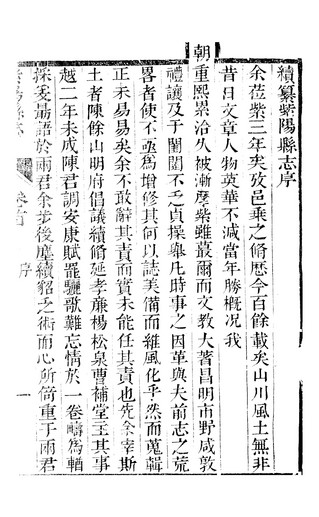 續纂紫陽縣志序
余莅紫三年矣攷邑乘之脩歷今百餘載矣山川風土無非
昔日文章人物英華不減當年勝概况我
朝重熙累洽久被漸摩紫雖蕞爾而文教大著昌明市野咸敦
禮讓及于閨閫不乏貞操舉凡時事之因革與夫前志之荒
畧者使不亟為增修其何以誌美備而維風化乎然而蒐輯
正未易易矣余不敢辭其責而實未能任其責也先余宰斯
土者陳餘山明府倡議續脩延孝廉楊松泉曹補堂主其事
越二年未成陳君調安康賦罷驪歌難忘情於一卷疇為輶
採爰晜語於兩君余步後塵續貂乏術而心所倚重于兩君
紫陽縣志
卷首
序
一